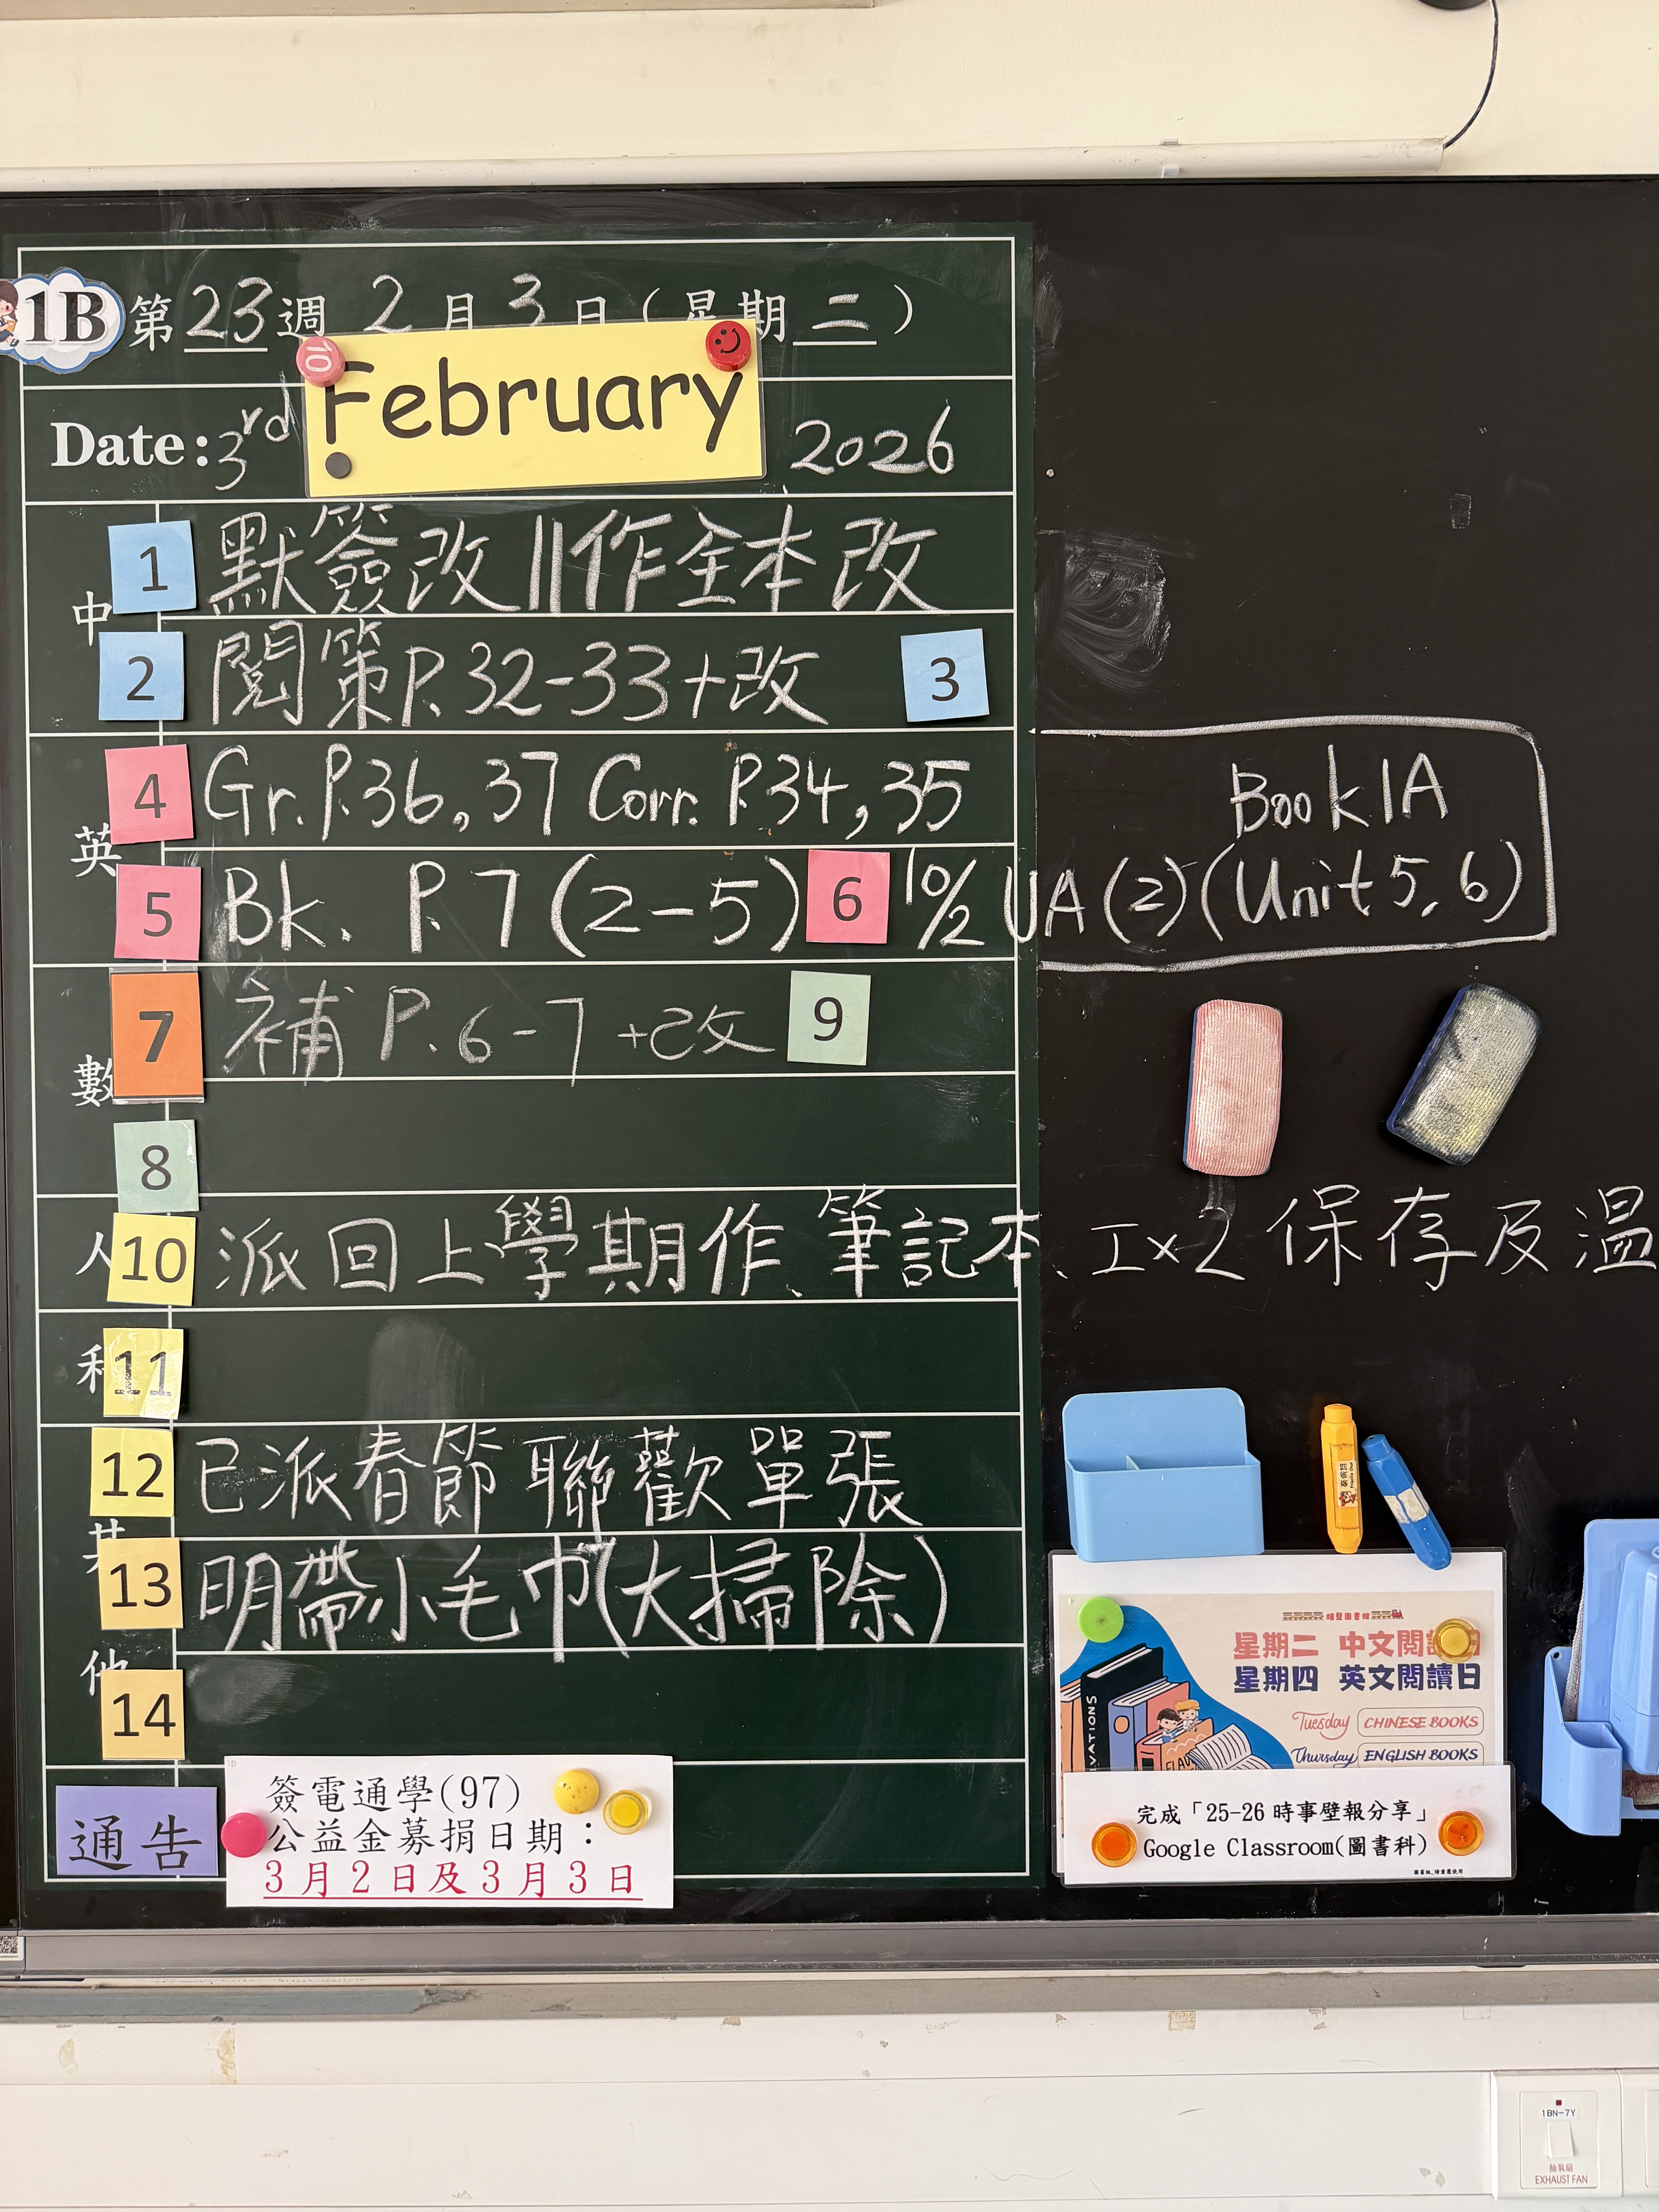 1B 第23週 2月3日(星期二)
Date: 3rd February 2026
中
1 默簽改||作全本改
2 閱策P.32-33+改 3
英
4 Gr. P.36, 37 Corr. P.34, 35
Book 1A
5 Bk. P.7 (2-5) 6 10/2 UA (2) (Unit 5, 6)
數
7 補 P.6-7+改 9
8
人
10 派回上學期作、筆記本、工x2 保存及溫
11
12 已派春節聯歡單張
其
13 明帶小毛巾(大掃除)
他
14
通告
簽電通學(97)
公益金募捐日期:
3月2日及3月3日
星期二 中文閱讀日
星期四 英文閱讀日
Tuesday CHINESE BOOKS
Thursday ENGLISH BOOKS
完成「25-26時事壁報分享」
Google Classroom(圖書科)
1BN-7Y
抽氣扇
EXHAUST FAN